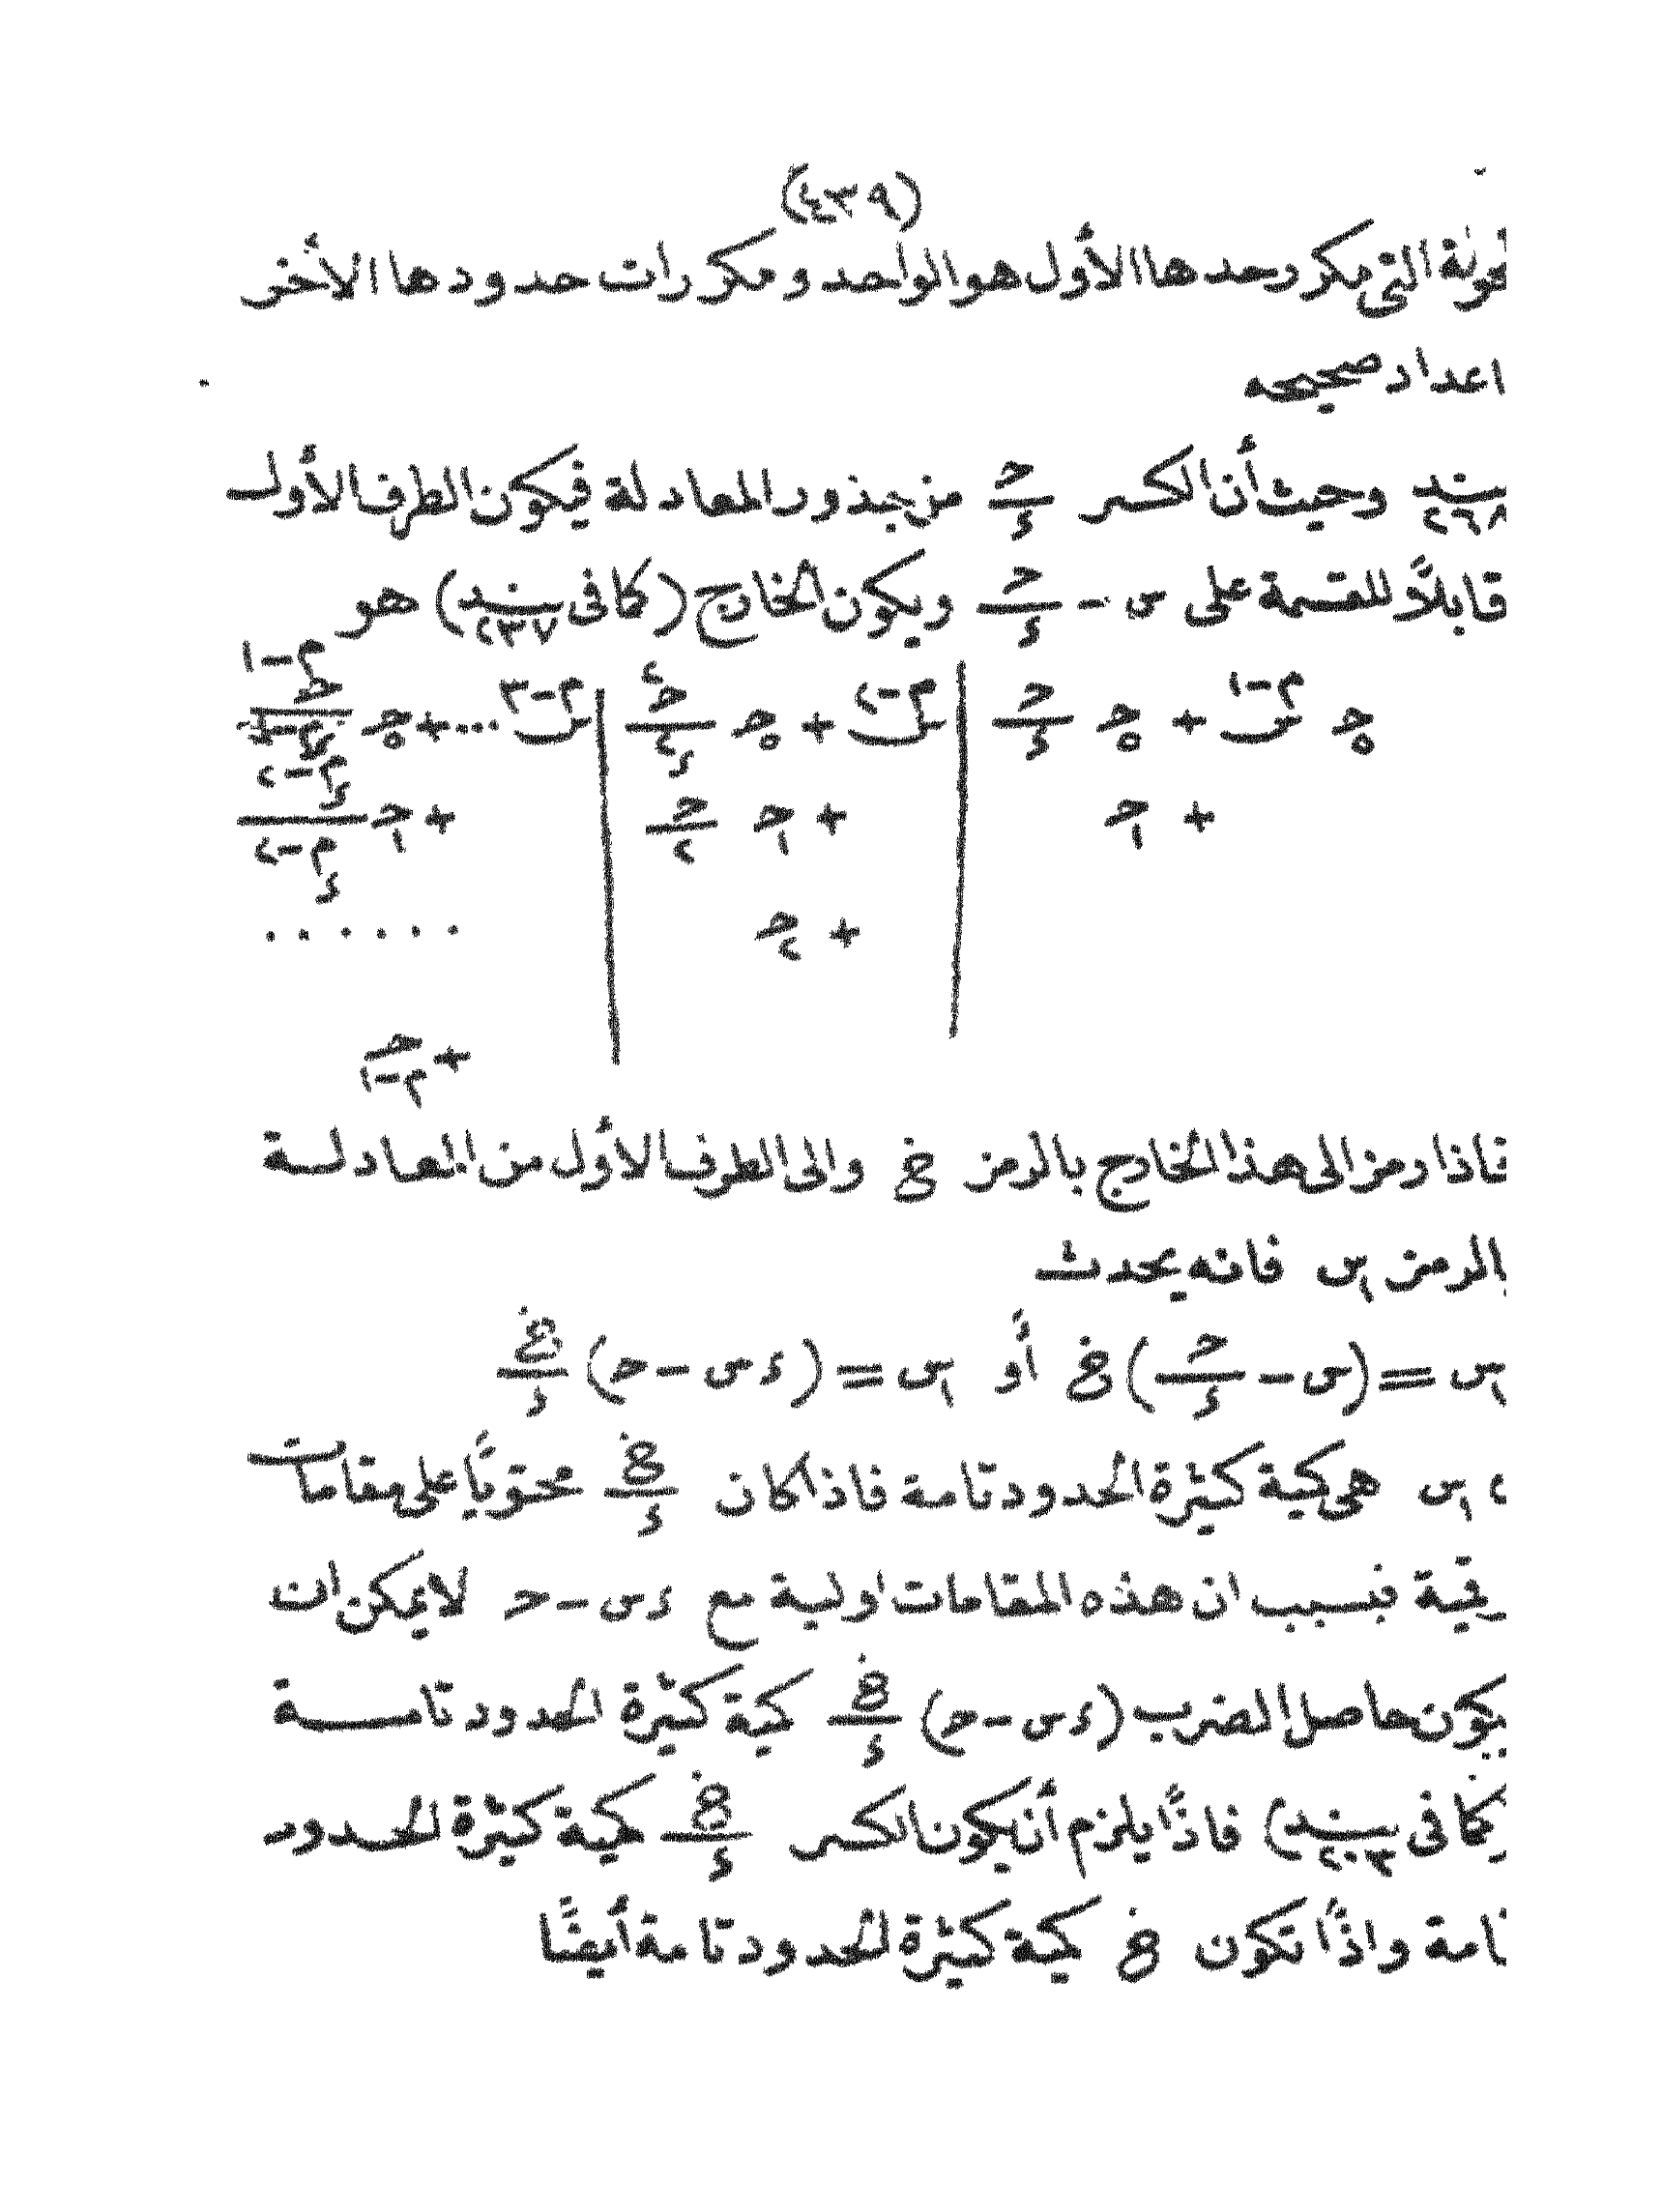 (٤٣٩)
التى مكرر حدها الأول هو الواحد و مكررات حدودها الأخر
اعداد صحيحه
بند ٢٦٨ وحيث أن الكسر حـ/ء من جذور المعادلة فيكون الطرف الأول
قابلاً للقسمة على س - حـ/ء ويكون الخارج (كما فى بند ٢٣٧) هو
حـ٥ س^(م-١) + حـ٥ حـ/ء | س^(م-٢) + حـ٥ حـ^٢/ء^٢ | س^(م-٣) ... + حـ٥ حـ^(م-١)/ء^(م-١)
+ حـ١ | + حـ١ حـ/٢ | + حـ١ حـ^(م-٢)/ء^(م-٢)
+ حـ٢ | . . . . . .
+ حـ(م-١)
فاذا رمز الى هذا الخارج بالرمز خ والى الطرف الأول من المعادلة
بالرمز س١ فانه يحدث
س١ = (س - حـ/ء) خ أو س١ = (ء س - حـ) خ/ء
، س١ هى كمية كثيرة الحدود تامة فاذا كان خ/ء محتويًا على مقامات
فبسبب ان هذه المقامات اولية مع ء س - حـ لا يمكن ان
يكون حاصل الضرب (ء س - حـ) خ/ء كمية كثيرة الحدود تامة
(كما فى بند ٢٠٣) فاذًا يلزم أن يكون الكسر خ/ء كمية كثيرة الحدود
تامة واذًا تكون خ كمية كثيرة الحدود تامة أيضًا